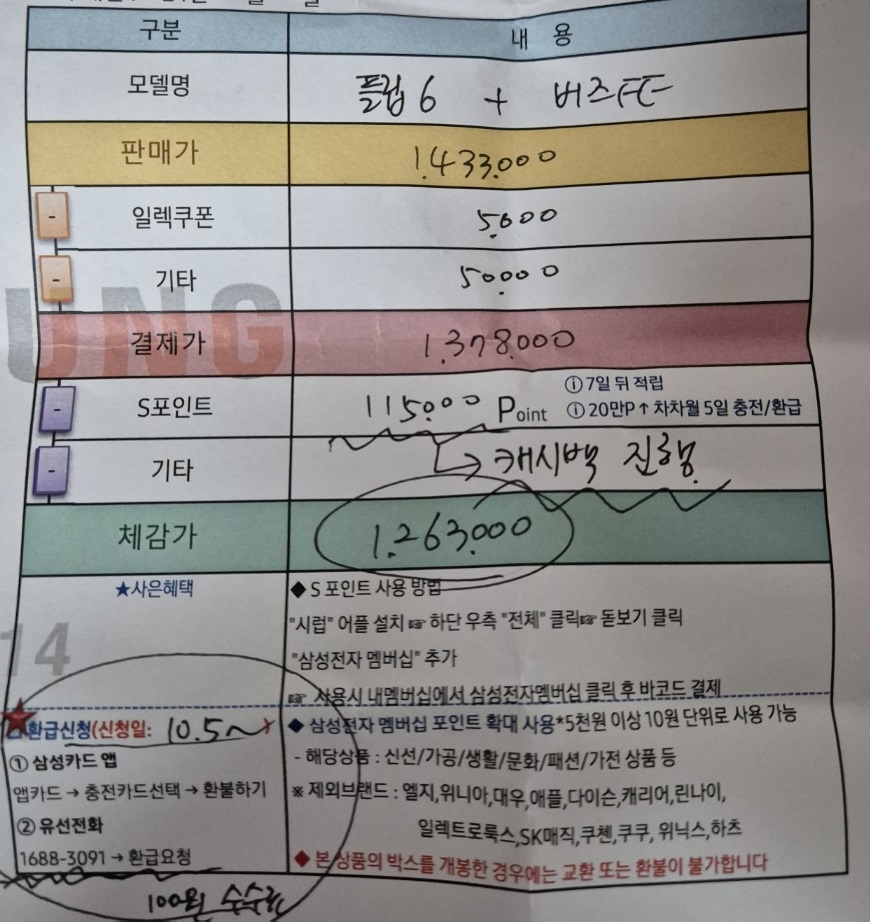 구분 내 용
모델명 플립6 + 버즈FE
판매가 1.433.000
- 일렉쿠폰 5.000
- 기타 50.000
결제가 1.378.000
- S포인트 115.000 Point ⓘ 7일 뒤 적립
ⓘ 20만P↑ 차차월 5일 충전/환급
- 기타 → 캐시백 진행
체감가 1.263.000
★사은혜택
◆ S 포인트 사용 방법
"시럽" 어플 설치 ☞ 하단 우측 "전체" 클릭☞ 돋보기 클릭
"삼성전자 멤버십" 추가
☞ 사용시 내멤버십에서 삼성전자멤버십 클릭 후 바코드 결제
환급신청(신청일: 10.5~)
① 삼성카드 앱
앱카드 → 충전카드선택 → 환불하기
② 유선전화
1688-3091 → 환급요청
100원 수수료
◆ 삼성전자 멤버십 포인트 확대 사용*5천원 이상 10원 단위로 사용 가능
- 해당상품 : 신선/가공/생활/문화/패션/가전 상품 등
※ 제외브랜드 : 엘지,위니아,대우,애플,다이슨,캐리어,린나이,
일렉트로룩스,SK매직,쿠첸,쿠쿠, 위닉스,하츠
◆ 본 상품의 박스를 개봉한 경우에는 교환 또는 환불이 불가합니다
UNG
14